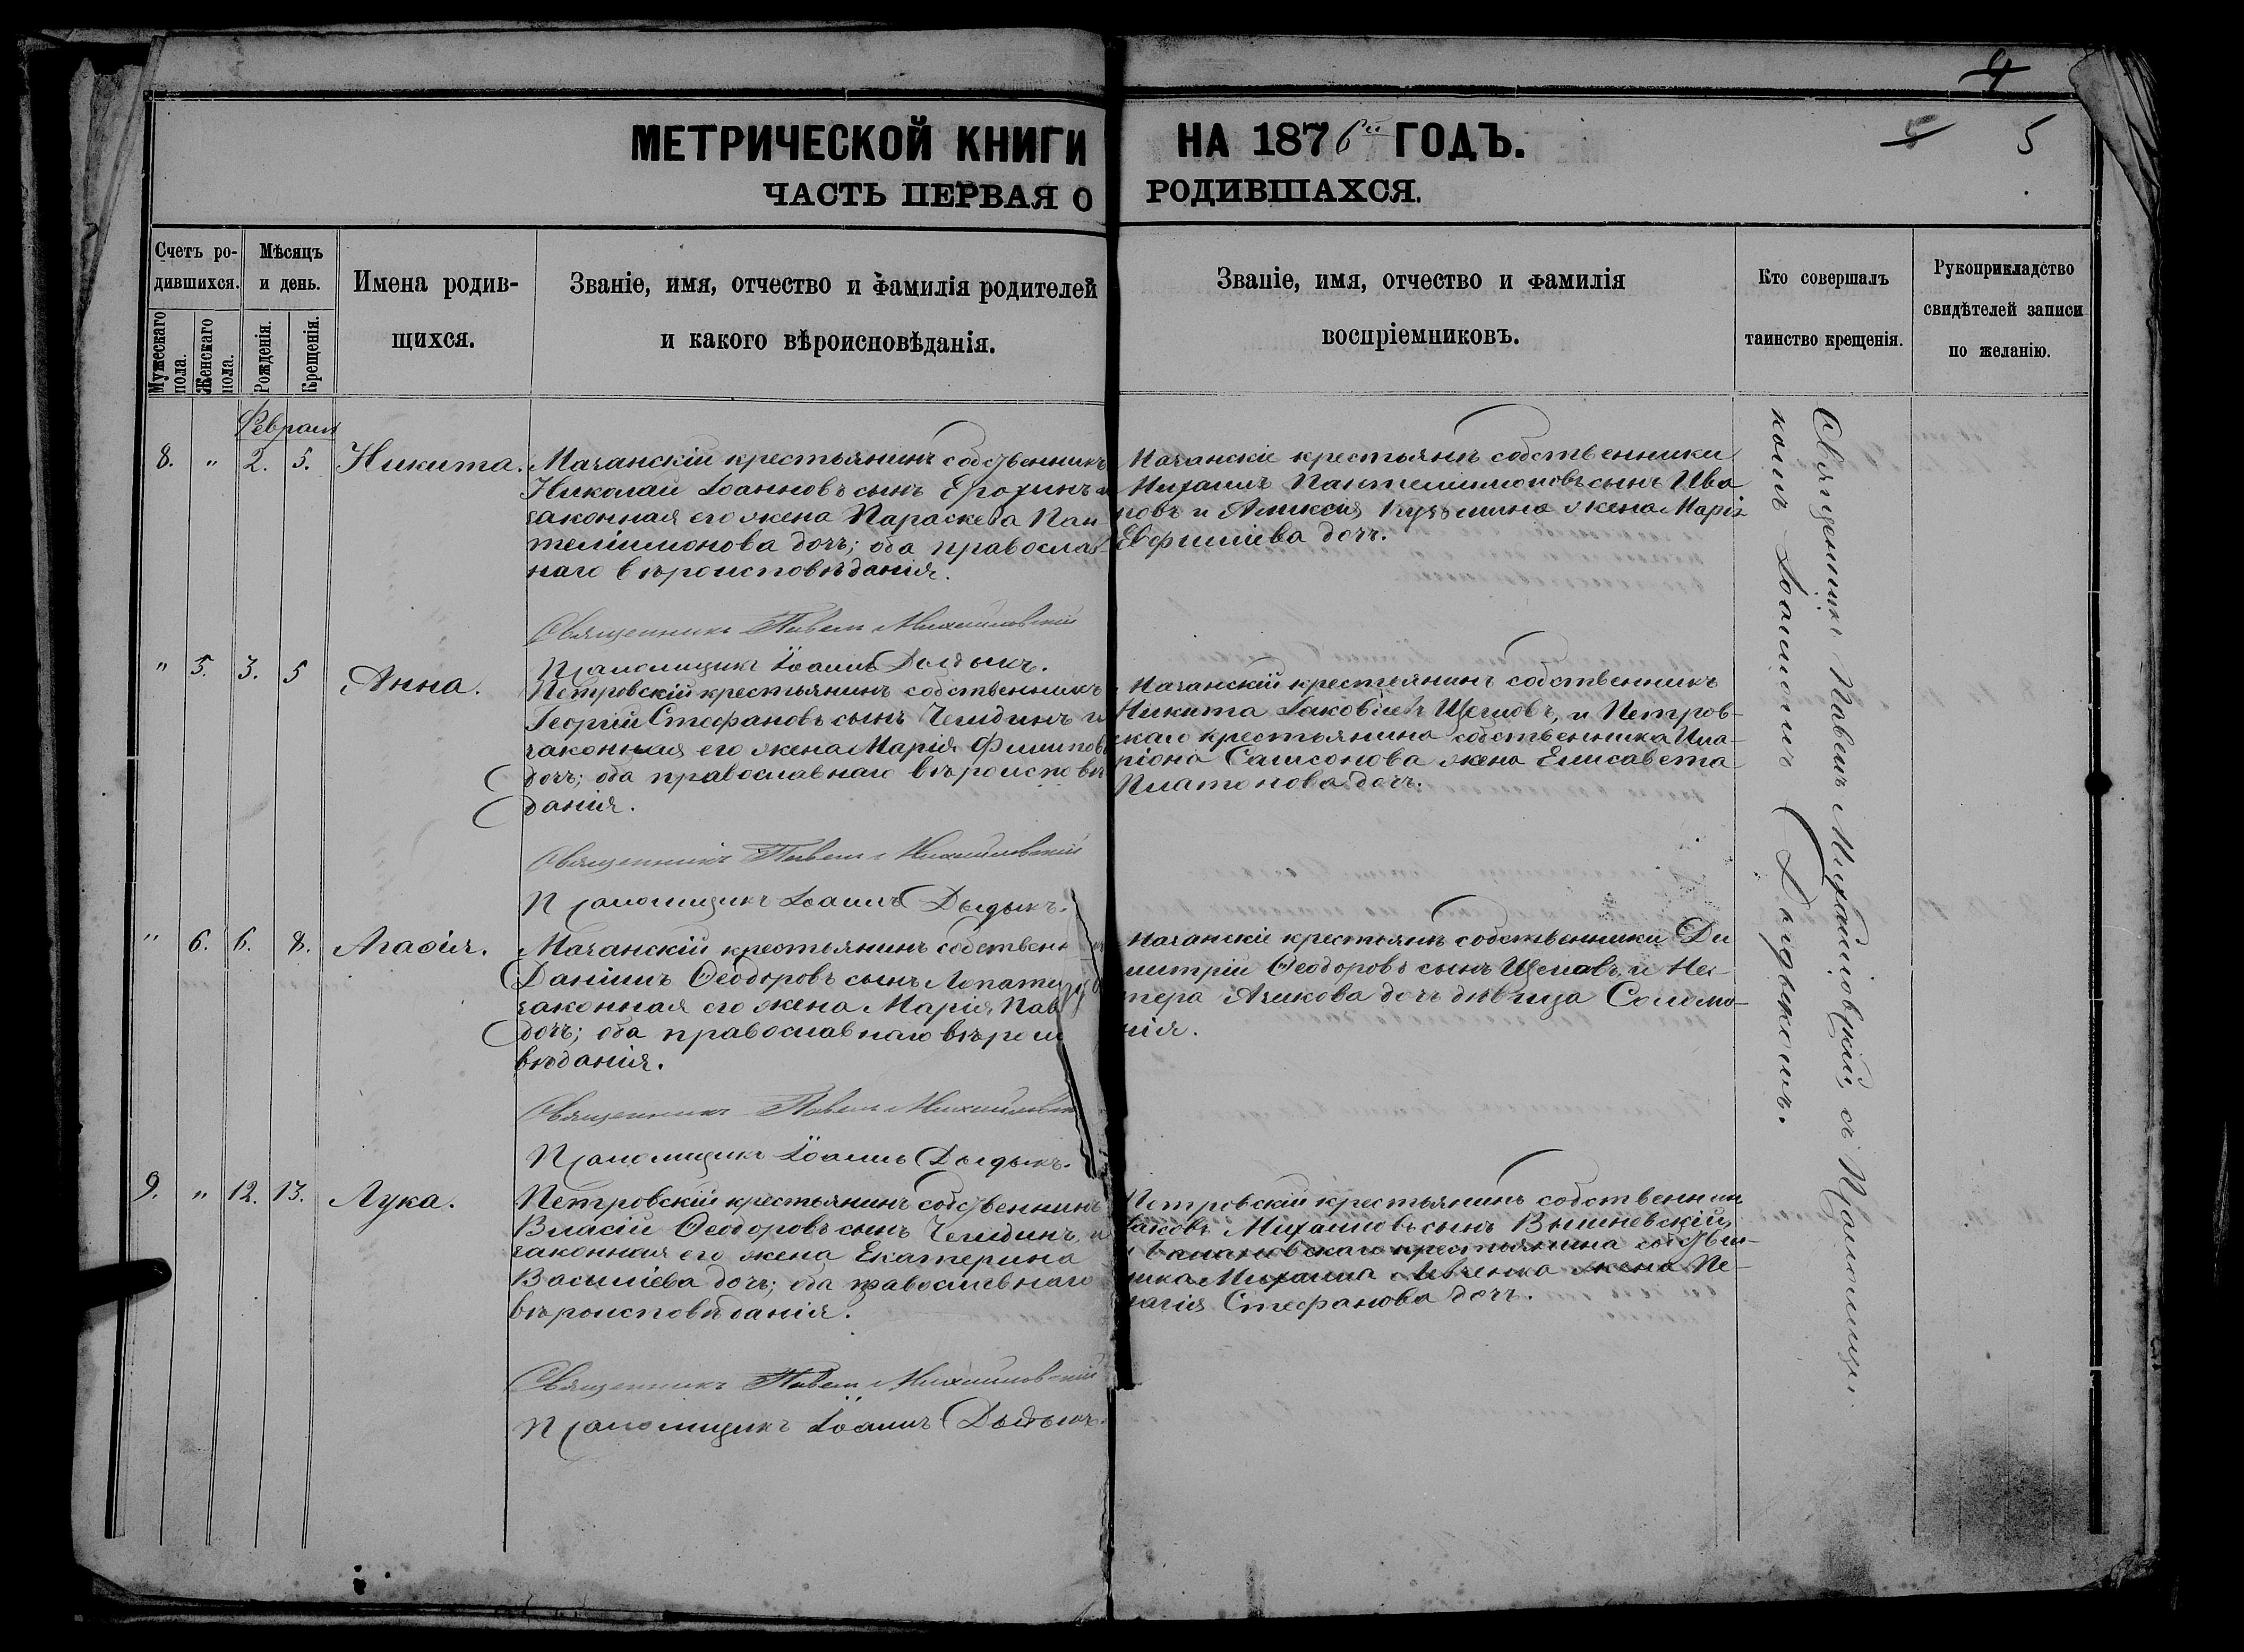 4
МЕТРИЧЕСКОЙ КНИГИ НА 1876й ГОДЪ.
5
ЧАСТЬ ПЕРВАЯ О РОДИВШАХСЯ.
Счетъ родившихся.
Мужескаго пола.
Женскаго пола.
Мѣсяцъ и день.
Рожденія.
Крещенія.
Имена родив-
щихся.
Званіе, имя, отчество и фамилія родителей
и какого вѣроисповѣданія.
Званіе, имя, отчество и фамилія
воспріемниковъ.
Кто совершалъ
таинство крещенія.
Рукоприкладство
свидѣтелей записи
по желанію.
Февраля
8. " 2. 5. Никита.
Мачанскій крестьянинъ собственникъ
Николай Іоанновъ сынъ Ерохинъ и
законная его жена Параскева Пан-
телиимонова дочь; оба православ-
наго вѣроисповѣданія.
Священникъ Павелъ Михайловскій
Псаломщикъ Іоаннъ Дыдыкъ.
Мачанскіе крестьяне собственники
Михаилъ Пантелиимоновъ сынъ Ива
новъ и Алексія Кузьмина жена Марія
Евфиміева дочь.
" 5. 3. 5 Анна.
Петровскій крестьянинъ собственникъ
Георгій Стефановъ сынъ Челидинъ и
законная его жена Марія Филипов
дочь; оба православнаго вѣроисповѣ
данія.
Священникъ Павелъ Михайловскій
Псаломщикъ Іоаннъ Дыдыкъ.
Мачанскій крестьянинъ собственникъ
Никита Іаковлевъ Щегловъ, и Петров-
скаго крестьянина собственника Ила-
ріона Самсонова жена Елисавета
Платонова дочь.
" 6. 6. 8. Агаѳія.
Мачанскій крестьянинъ собствен
Даніилъ Ѳеодоровъ сынъ
законная его жена Марія Пав
дочь; оба православнаго вѣроис
вѣданія.
Священникъ Павелъ Михайловскій
Псаломщикъ Іоаннъ Дыдыкъ.
Мачанскіе крестьяне собственники Ди
митрій Ѳеодоровъ сынъ и
дочь дѣвица Соломо-
нія.
9. " 12. 13. Лука.
Петровскій крестьянинъ собственникъ
Власій Ѳеодоровъ сынъ Челидинъ, и
законная его жена Екатерина
Василіева дочь; оба православнаго
вѣроисповѣданія.
Священникъ Павелъ Михайловскій
Псаломщикъ Іоаннъ Дыдыкъ.
Петровскій крестьянинъ собственник
Іаковъ Михаиловъ сынъ Вышневскій,
и крестьянина собствен-
ника Михаила Левченка жена Пе-
лагія Стефанова дочь.
Священникъ Павелъ Михайловскій, съ Псаломщи-
комъ Іоанномъ Дыдыкомъ.